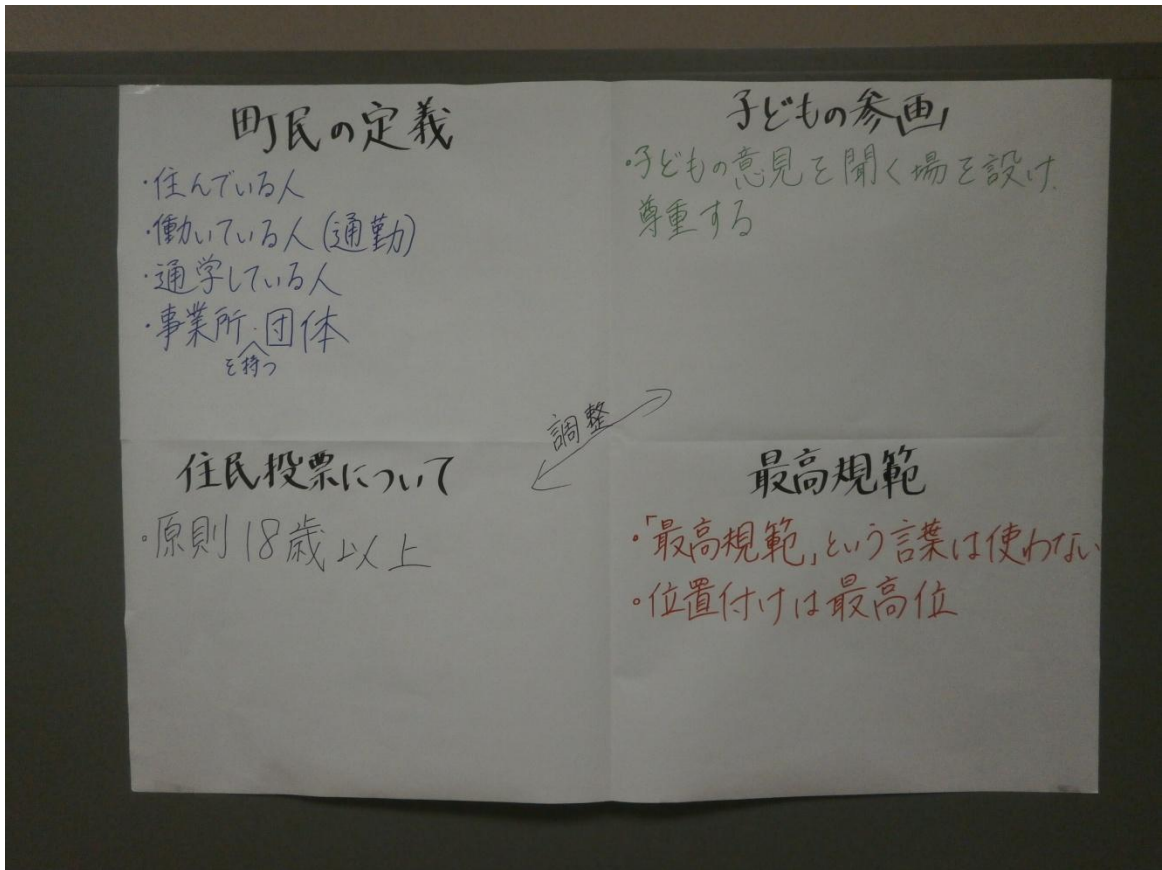 町民の定義
・住んでいる人
・働いている人(通勤)
・通学している人
・事業所・団体
を持つ
子どもの参画
・子どもの意見を聞く場を設け、
尊重する
調整
住民投票について
・原則18歳以上
最高規範
・「最高規範」という言葉は使わない
・位置付けは最高位